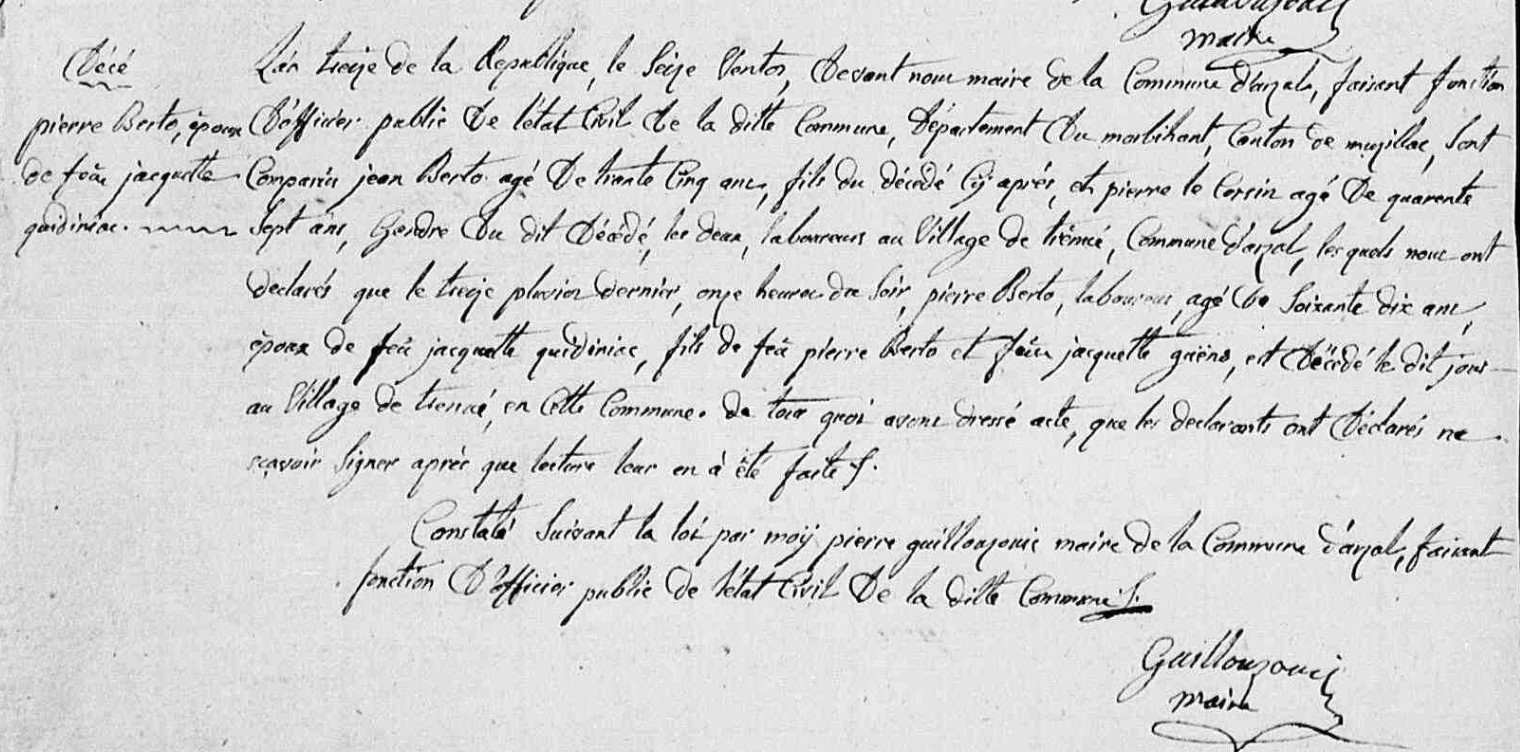 maire
Décé
pierre Berto, époux
de feüe jacquette
quidiniac.
L'an treize de la Republique, le Seize Ventos, Devant nous maire de la Commune d'arzal, faisant fonction
D'officier public De l'état Civil De la ditte Commune, Département Du morbihant, Canton de muzillac, Sont
Comparus jean Berto agé De trante Cinq ans, fils du décédé Cy aprés, et pierre le Corsin agé De quarente
Sept ans, Gendre Du dit Décédé, les deux, laboureurs au Village de trémué, Commune d'arzal, les quels nous ont
declarés que le treize pluvios dernier, onze heures du Soir, pierre Berto, laboureur, agé De Soixante dix ans,
époux de feüe jacquette quidiniac, fils de feü pierre Berto et feüe jacquette guéno, est Décédé le dit jour
au Village de tremué, en Cette Commune. de tout quoi avons dressé acte, que les declarants ont Déclarés ne
sçavoir Signer aprés que lecture leur en à été faite ſ.
Constaté Suivant la loi par moÿ pierre guillouzouic maire de la Commune d'arzal, faisant
fonction D'officier public de l'état Civil De la ditte Commune ſ.
Guillouzouic
maire